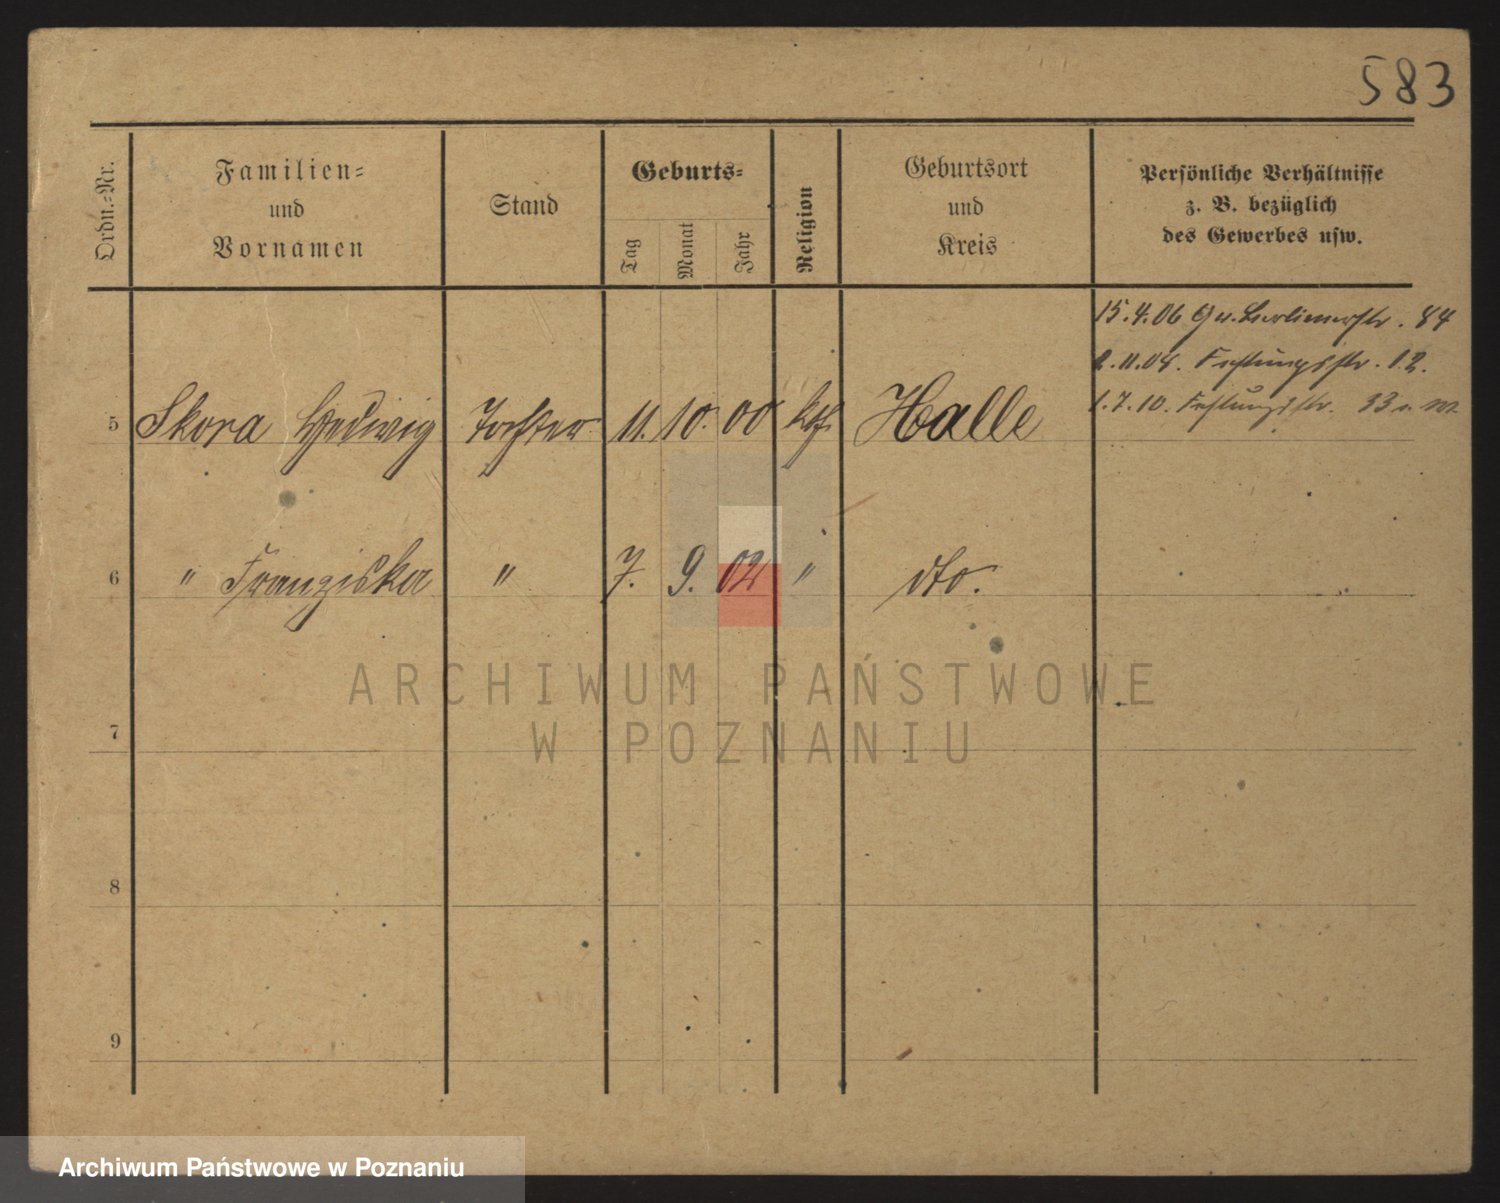 583
Ordn.-Nr.
Familien-
und
Vornamen
Stand
Geburts-
Tag
Monat
Jahr
Religion
Geburtsort
und
Kreis
Persönliche Verhältnisse
z. B. bezüglich
des Gewerbes usw.
15.4.06 Gr. Berlinerstr. 84
2.11.08. Festungsstr. 12.
1.7.10. Festungsstr. 33
5 Skora Hedwig Tochter 11. 10. 00 kth. Halle
6 " Franziska " 7. 9. 02 " dto.
7
8
9
ARCHIWUM PAŃSTWOWE
W POZNANIU
Archiwum Państwowe w Poznaniu